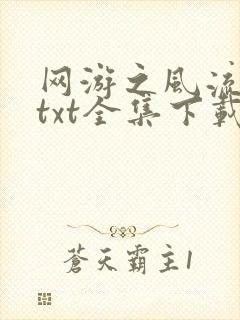 网游之风流
txt全集下載
蒼天霸主1